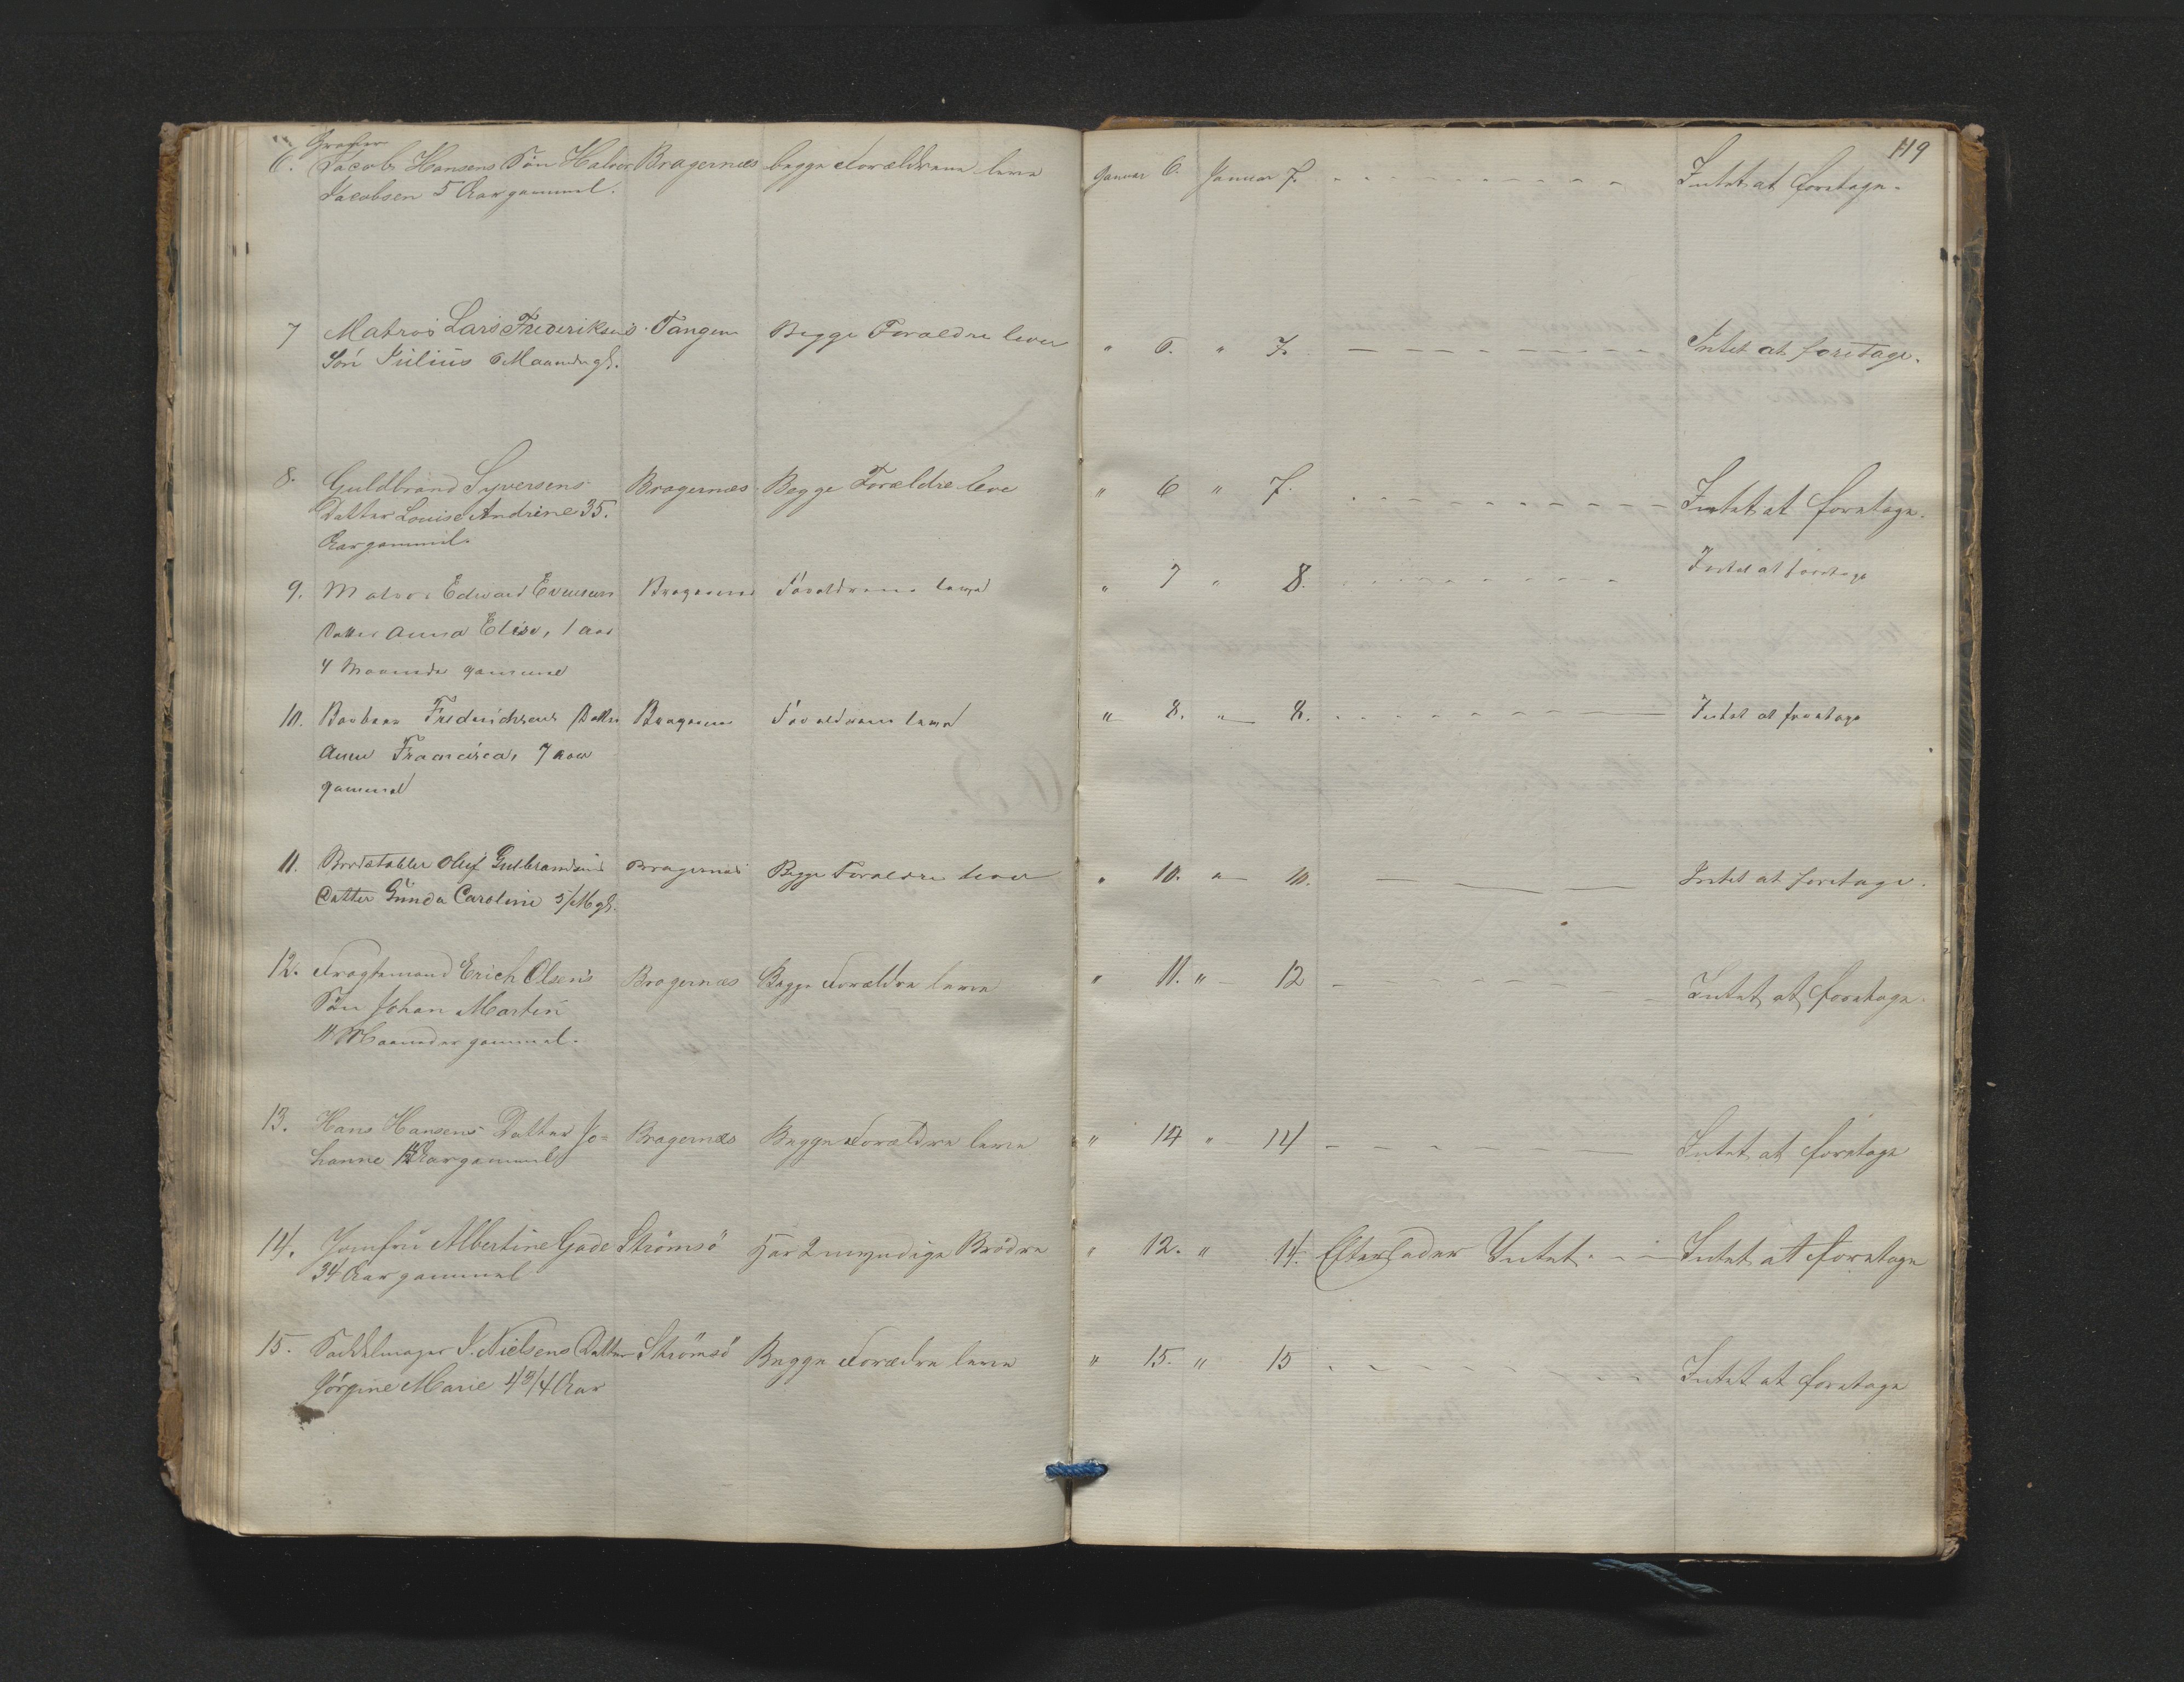 119
6. Jacob Hansens Søn Halvor Bragernæs begge Forældrene leve Januar 6. Januar 7. Intet at foretage.
Jacobsen 5 Aar gammel.
7 Matros Lars Frederiksens Tangen Begge Forældre lever " 6. " 7. Intet at foretage.
Søn Julius 6 Maaneder gl.
8. Guldbrand Syversens Bragernæs Begge Forældre leve " 6 " 7. Intet at foretage.
Datter Louise Andrine 35.
Aar gammel.
9. Matros Edward Evensens Bragernæs Forældrene leve " 7 " 8. Intet at foretage
Datter Anna Elise, 1 aar
4 Maaneder gammel
10. Frederichsens Datter Bragernæs Forældrene leve " 8. " 8. Intet at foretage
Anne Francisca, 7 aar
gammel
11. Bordstabler Oluf Gulbrandsens Bragernæs Begge Forældre lever " 10. " 10. Intet at foretage.
Datter Gunda Caroline 5/M gl.
12. Fragtemand Erich Olsens Bragernæs Begge Forældre leve " 11. " 12 Intet at foretage.
Søn Johan Martin
11 Maaneder gammel.
13. Hans Hansens Datter Jo= Bragernæs Begge Forældre leve " 14 " 14 Intet at foretage
hanne Aar gammel
14. Jomfru Albertine Gade Strömsö Har 2 myndige Brödre " 12. " 14. Efterlader Intet. Intet at foretage
34 Aar gammel
15. Saddelmager J. Nielsens Datter Strömsö Begge Forældre leve " 15. " 15 Intet at foretage
Jörgine Marie 4 3/4 Aar